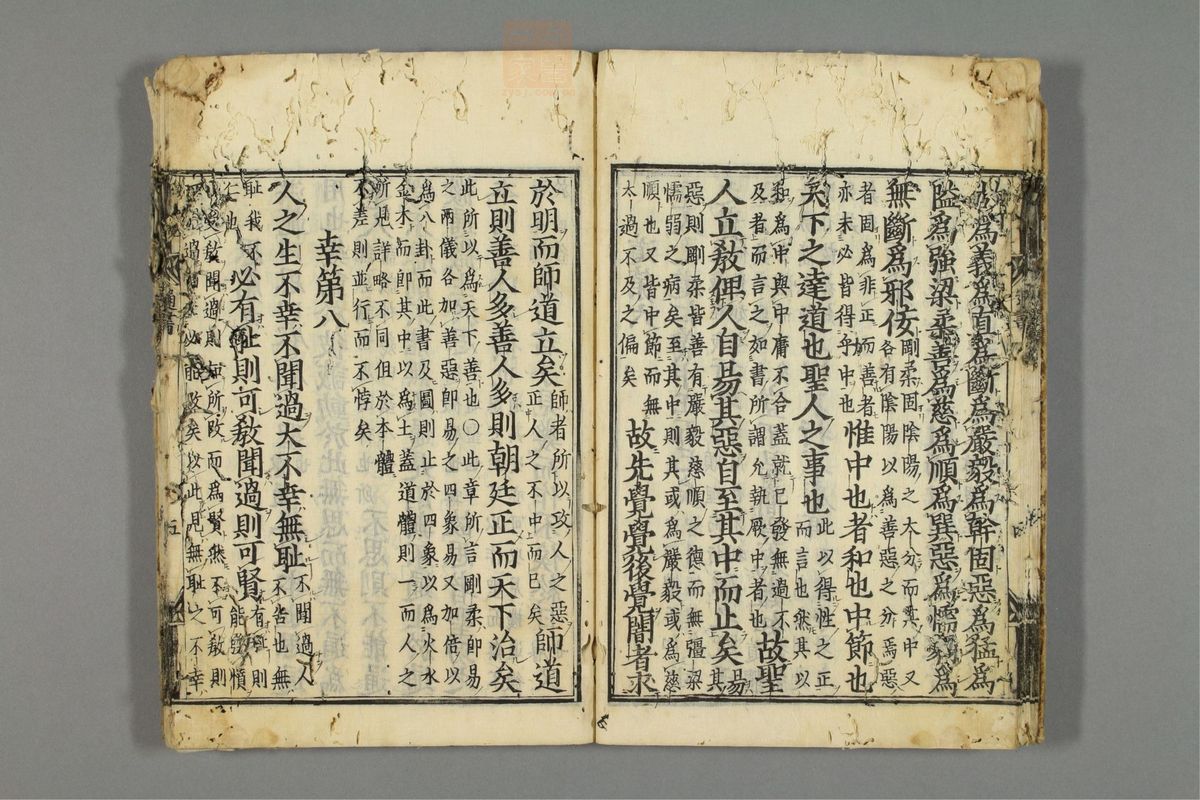 爲義爲直爲斷爲嚴毅爲幹固惡爲猛爲
隘爲強梁柔善爲慈爲順爲巽惡爲懦弱爲
無斷爲邪佞
剛柔固陰陽之大分而其中又
各有陰陽以爲善惡之分焉惡
者固爲非正而善者
亦未必皆得乎中也
惟中也者和也中節也
天下之達道也聖人之事也
此以得性之正
而言也然其以
和爲中與中庸不合蓋就已發無過不
及者而言之如書所謂允執厥中者也
故聖
人立教俾人自易其惡自至其中而止矣
易
其
惡則剛柔皆善有嚴毅慈順之德而無彊梁
懦弱之病矣至其中則其或爲嚴毅或爲慈
順也又皆中節而無
太過不及之偏矣
故先覺覺後覺闇者求
於明而師道立矣
師者所以攻人之惡
正人之不中而已矣
師道
立則善人多善人多則朝廷正而天下治矣
此所以爲天下善也○此章所言剛柔卽易
之兩儀各加善惡卽易之四象易又加倍以
爲八卦而此書及圖則止於四象以爲火水
金木而卽其中以爲土蓋道體則一而人之
所見詳略不同但於本體
不差則並行而不悖矣
幸第八
人之生不幸不聞過大不幸無恥
不聞過人
不告也無
恥我不
仁也
必有恥則可教聞過則可賢
有恥則
能發憤
受教聞過則知所改而爲賢然不可教則
過而未必能改矣以此見無恥之不幸
通書
五